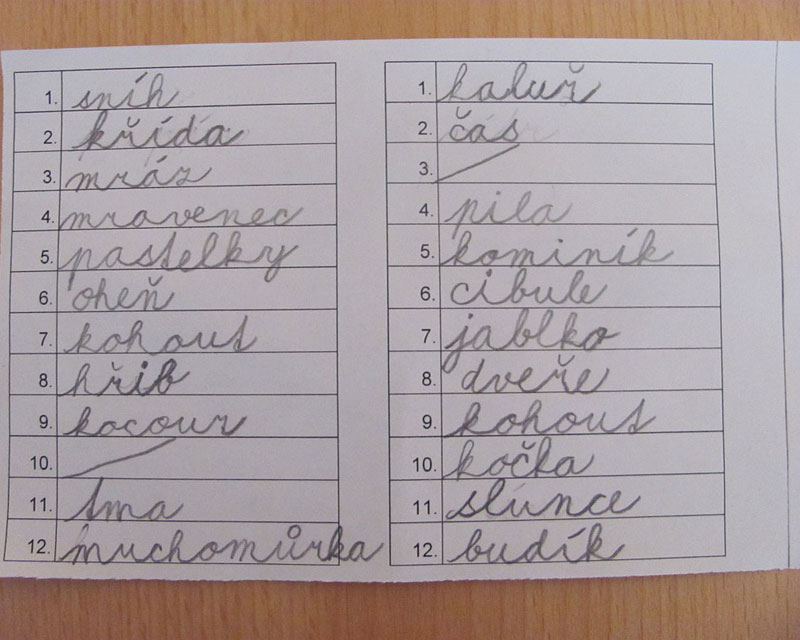 1. sníh
2. křída
3. mráz
4. mravenec
5. pastelky
6. oheň
7. kohout
8. hřib
9. kocour
10.
11. tma
12. muchomůrka
1. kaluř
2. čas
3.
4. pila
5. kominík
6. cibule
7. jablko
8. dveře
9. kohout
10. kočka
11. slunce
12. budík